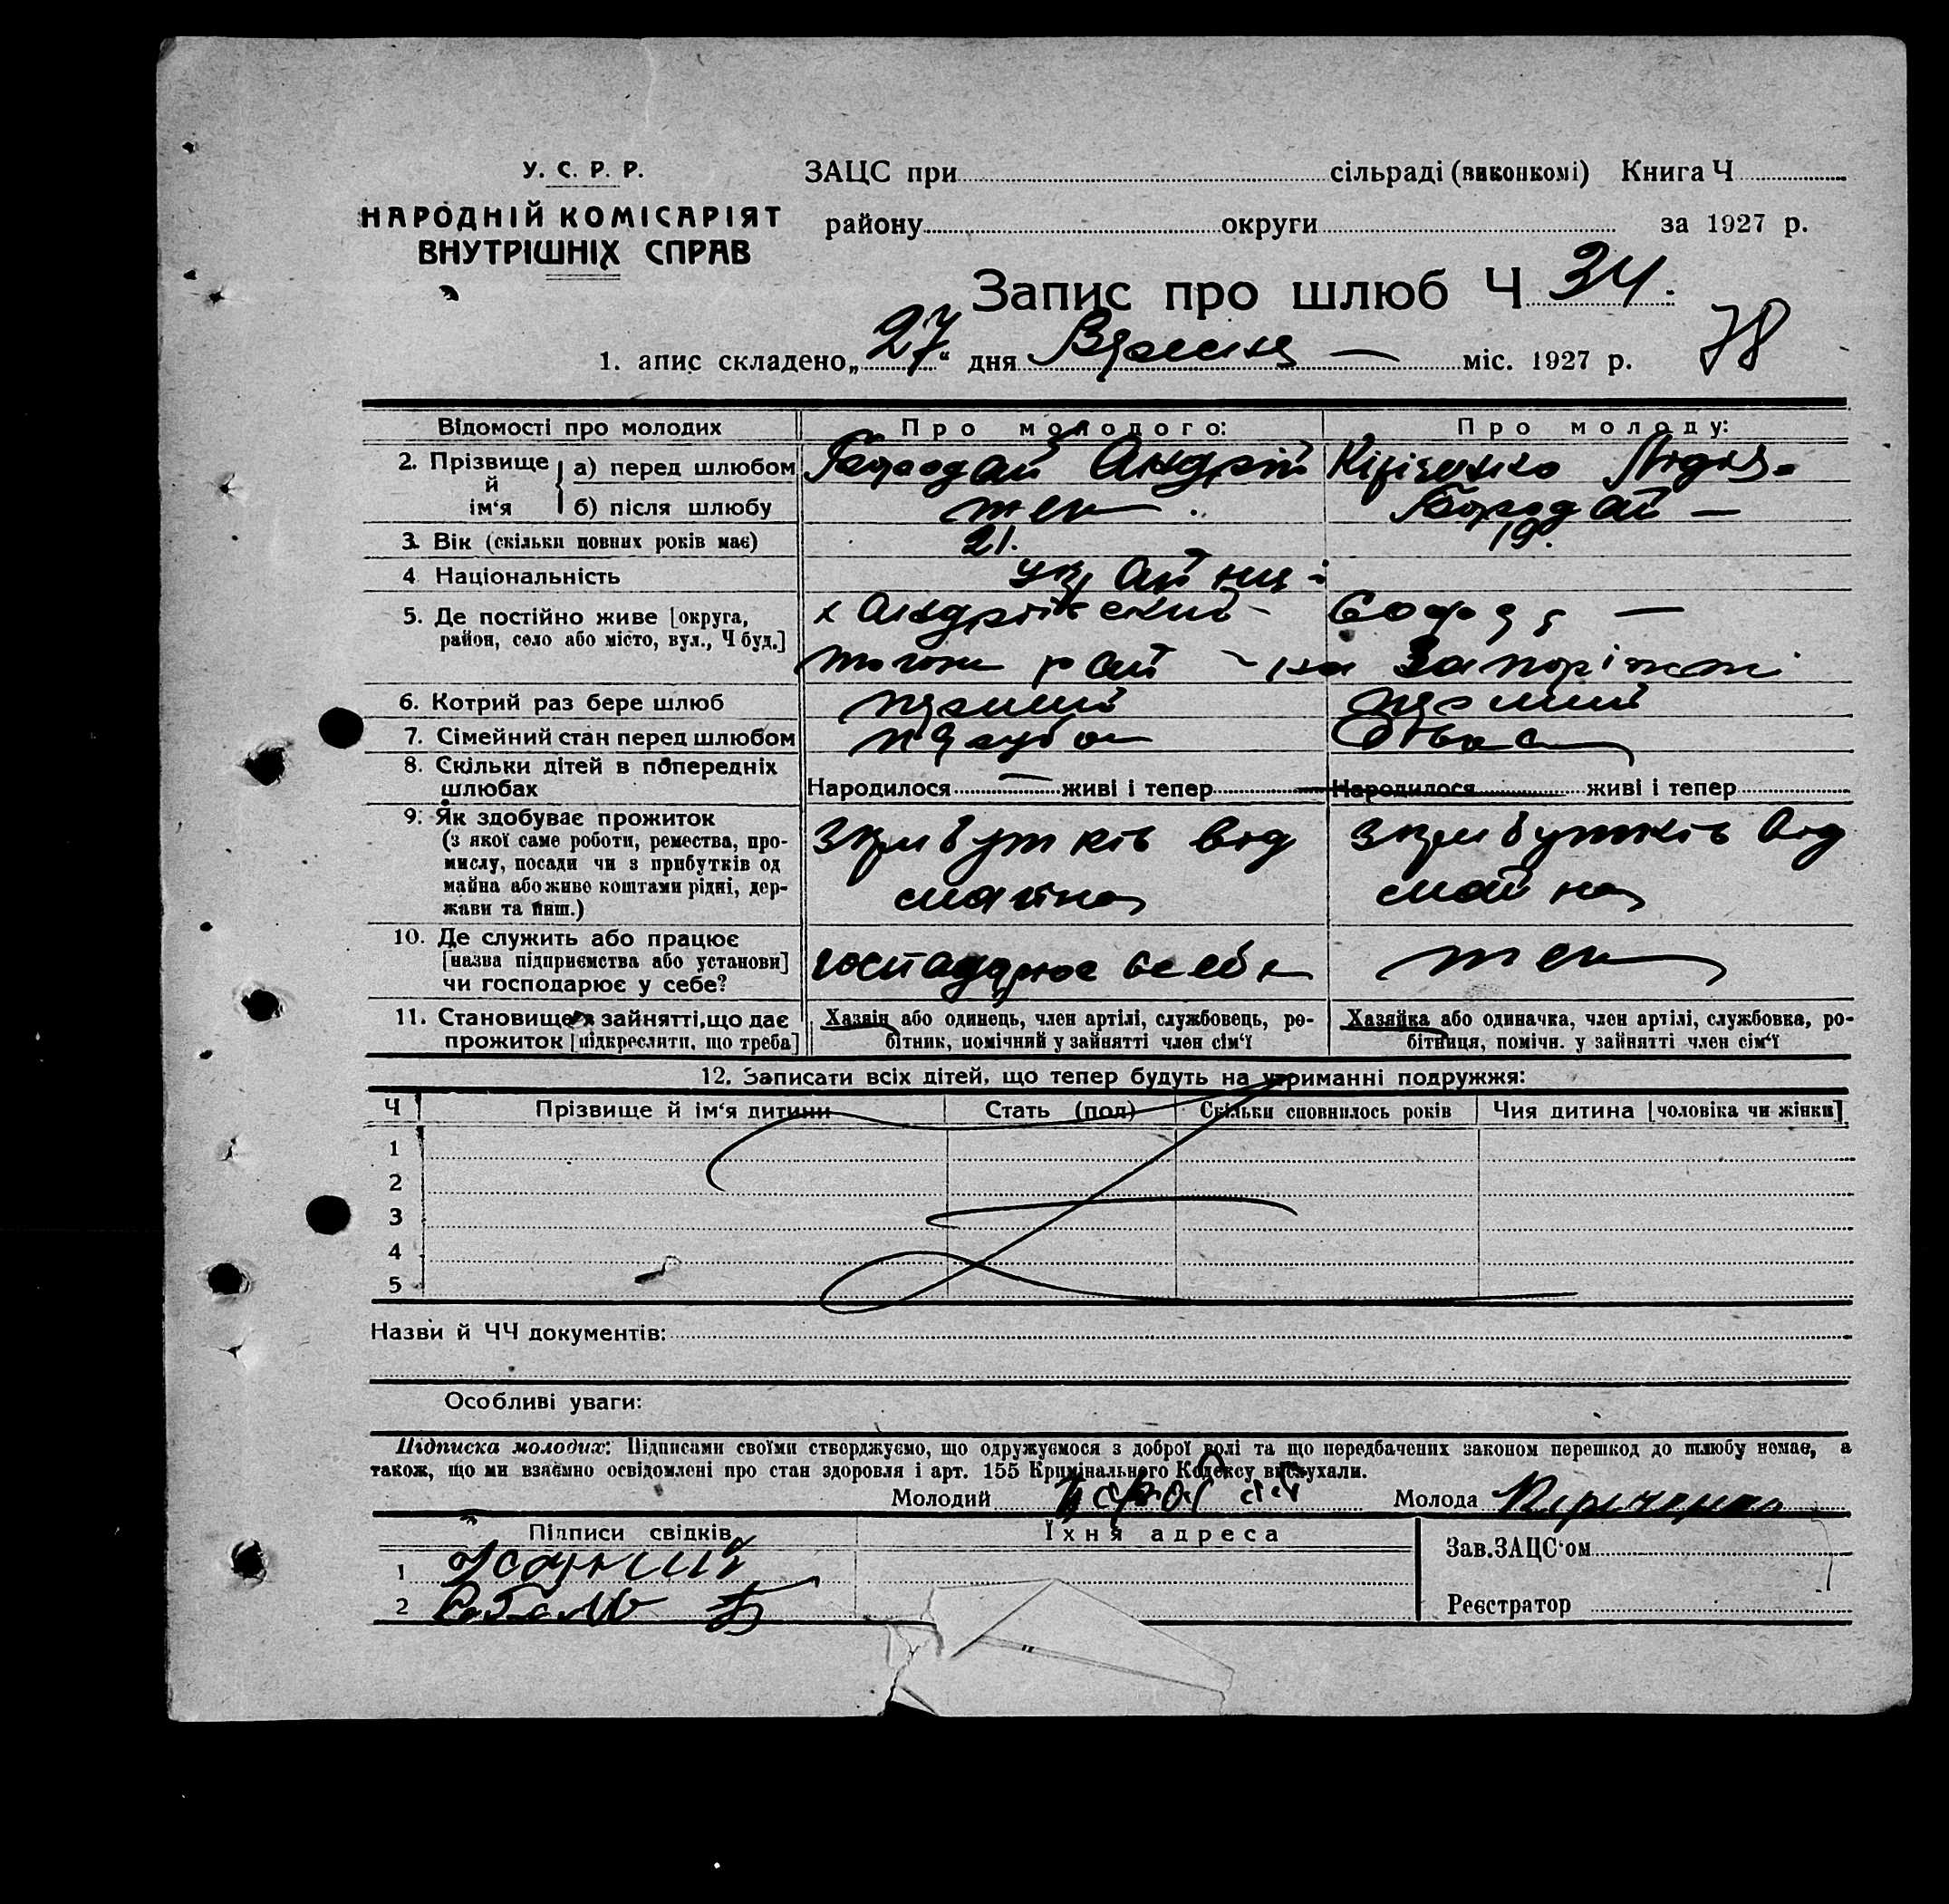 У. С. Р. Р.
НАРОДНІЙ КОМІСАРІЯТ
ВНУТРІШНІХ СПРАВ
ЗАЦС при сільраді (виконкомі) Книга Ч
району округи за 1927 р.
Запис про шлюб Ч 34.
1. апис складено „27“ дня Вресня міс. 1927 р. 78
Відомості про молодих Про молодого: Про молоду:
2. Прізвище й ім‘я а) перед шлюбом Бородай Андрій Кіріченко Лідія
б) після шлюбу теж Бородай
3. Вік (скільки повних років має) 21. 19.
4 Національність українці
5. Де постійно живе [округа, х Андріївский
район, село або місто, вул., Ч буд.] району на Запоріжжі
6. Котрий раз бере шлюб перший перший
7. Сімейний стан перед шлюбом
8. Скільки дітей в попередніх
шлюбах Народилося живі і тепер Народилося живі і тепер
9. Як здобуває прожиток
(з якої саме роботи, ремества, про-
мислу, посади чи з прибутків од
майна або живе коштами рідні, дер-
жави та инш.)
з прибутків від майна
з прибутків від майна
10. Де служить або працює
[назва підприємства або установи]
чи господарює у себе?
господарює в себе теж
11. Становище в зайнятті, що дає
прожиток [підкреслити, що треба]
Хазяїн або одинець, член артілі, службовець, ро-
бітник, помічний у зайнятті член сім‘ї
Хазяйка або одиначка, член артілі, службовка, ро-
бітниця, помічн. у зайнятті член сім‘ї
12. Записати всіх дітей, що тепер будуть на утриманні подружжя:
Ч Прізвище й ім‘я дитини Стать (пол) Скільки сповнилось років Чия дитина [чоловіка чи жінки]
1
2
3
4
5
Назви й ЧЧ документів:
Особливі уваги:
Підписка молодих: Підписами своїми стверджуємо, що одружуємося з доброї волі та що передбачених законом перешкод до шлюбу немає, а
також, що ми взаємно освідомлені про стан здоровля і арт. 155 Кримінального Кодексу вислухали.
Молодий Бородай Молода Кириченко
Підписи свідків Їхня адреса
1
2
Зав. ЗАЦС‘ом
Реєстратор